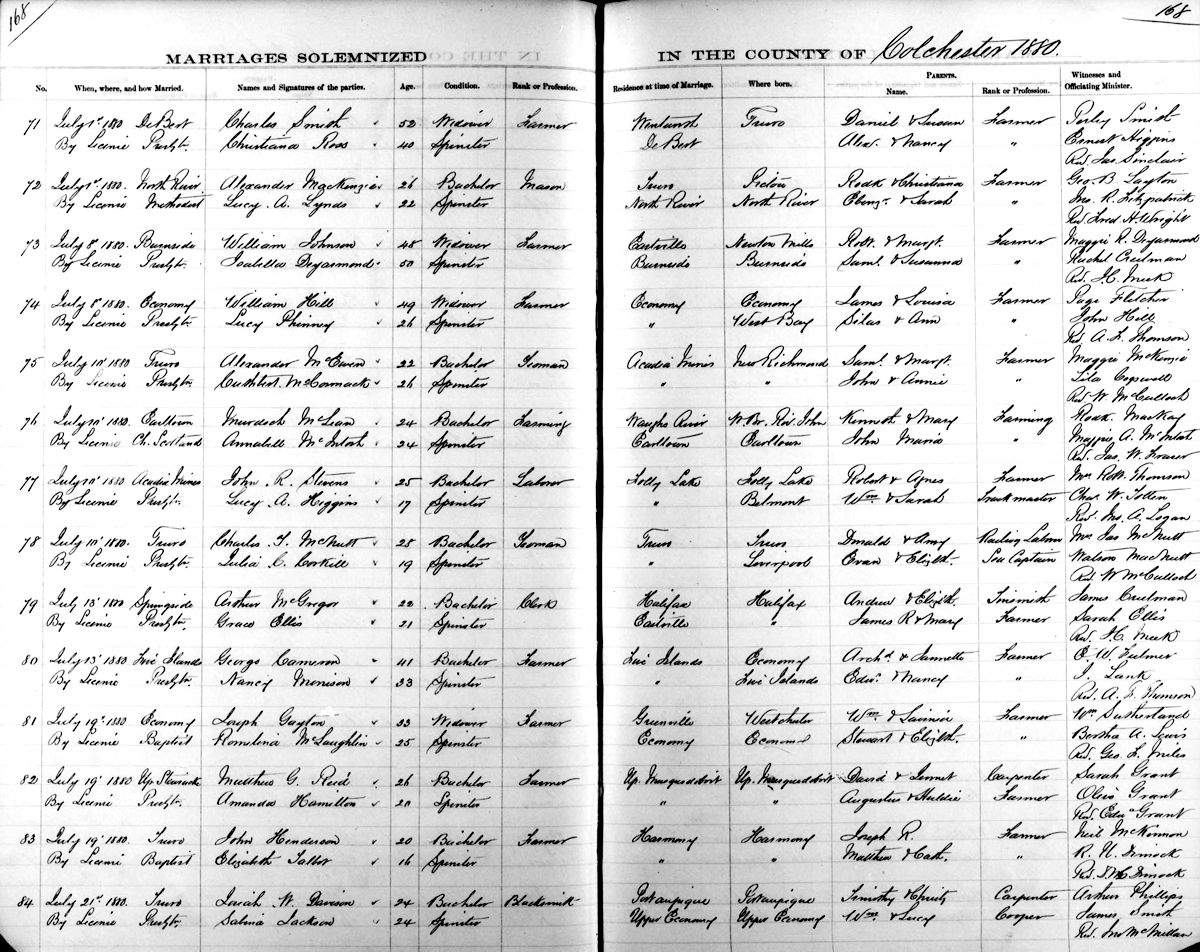 168
168
MARRIAGES SOLEMNIZED IN THE COUNTY OF Colchester 1880.
No. When, where, and how Married. Names and Signatures of the parties. Age. Condition. Rank or Profession. Residence at time of Marriage. Where born. PARENTS. Name. Rank or Profession. Witnesses and Officiating Minister.
71 July 1st 1880 DeBert Charles Smith 52 Widower Farmer Wentworth Truro Daniel & Susan Farmer Perley Smith
By Licence Presbytn. Christiana Ross 40 Spinster DeBert Alexr. & Nancy " Ernest Higgins
Revd. Jas. Sinclair
72 July 1st 1880. North River Alexander MacKenzie 26 Bachelor Mason Truro Pictou Rodk & Christiana Farmer Geo. B. Layton
By Licence Methodist Lucy A. Lynds 22 Spinster North River North River Ebenr. & Sarah " Jno. R. Fitzpatrick
Revd Fred H. Wright
73 July 8th 1880. Burnside William Johnson 48 Widower Farmer Eastville Newton Mills Robt. & Margt. Farmer Maggie R. Deyarmond
By Licence Presbytn. Isabella Deyarmond 50 Spinster Burnside Burnside Saml. & Susanna " Rachel Creelman
Revd. J. C. Meek
74 July 8th 1880. Economy William Hill 49 Widower Farmer Economy Economy James & Louisa Farmer Page Fletcher
By Licence Presbytn. Lucy Phinney 26 Spinster " West Bay Silas & Ann " John Hill
Revd. A. F. Thomson
75 July 10th 1880 Truro Alexander McEwen 22 Bachelor Yeoman Acadia Mines New Richmond Saml. & Margt. Farmer Maggie McKenzie
By Licence Presbytn. Cuthbert. McCormack 26 Spinster " " John & Annie " Lila Cogswell
Revd W. McCulloch
76 July 10th 1880. Earltown Murdoch McLean 24 Bachelor Farming Waughs River W. Br. Riv. John Kenneth & Mary Farming Rodk. MacKay
By Licence Ch. Scotland Annabell McIntosh 24 Spinster Earltown Earltown John Maria " Maggie A. McIntosh
Revd. Jas. W. Fraser
77 July 10th 1880 Acadia Mines John R. Stevens 25 Bachelor Laborer Folly Lake Folly Lake Robert & Agnes Farmer Mrs Robt. Thomson
By Licence Presbytn. Lucy A. Higgins 17 Spinster " Belmont Wm & Sarah Trackmaster Chas. W. Totten
Revd. Jno. A. Logan
78 July 10th 1880. Truro Charles F. McNutt 28 Bachelor Yeoman Truro Truro Donald & Amy Railway Laborer Mrs Jas McNutt
By Licence Presbytn. Julia C. Corkill 19 Spinster " Liverpool Evan & Elizth. Sea Captain Watson MacNutt
Revd W McCulloch
79 July 13th 1880 Springside Arthur McGregor 22 Bachelor Clerk Halifax Halifax Andrew & Elizth. Tinsmith James Creelman
By Licence Presbytn. Grace Ellis 21 Spinster Eastville " James R & Mary Farmer Sarah Ellis
Revd. J. C. Meek
80 July 13th 1880 Five Islands George Cameron 41 Bachelor Farmer Five Islands Economy Archd & Jannette Farmer C. W. Fulmer
By Licence Presbytn. Nancy Morrison 33 Spinster " Five Islands Edwd. & Nancy " J. Lank
Revd. A. F. Thomson
81 July 19th 1880 Economy Joseph Gayton 33 Widower Farmer Greenville Westchester Wm & Lavinia Farmer Wm Sutherland
By Licence Baptist McLaughlin 25 Spinster Economy Economy Stewart & Elizth. " Bertha A. Lewis
Revd. Geo. F. Miles
82 July 19th 1880 Up. Stewiacke Matthew G. Reid 26 Bachelor Farmer Up. Musquodoboit Up. Musquodoboit David & Jennet Carpenter Sarah Grant
By Licence Presbytn. Amanda Hamilton 20 Spinster " " Augustus & Huldie Farmer Olivia Grant
Revd. Edwd Grant
83 July 19th 1880 Truro John Henderson 20 Bachelor Farmer Harmony Harmony Joseph R. Farmer Neil McKinnon
By Licence Baptist Elizabeth Talbot 16 Spinster " " Matthew & Cath. " R. U. Dimock
Revd. D. McC Dimock
84 July 21st 1880. Truro Isaiah W. Davison 24 Bachelor Blacksmith Portaupique Portaupique Timothy & Christy Carpenter Arthur Phillips
By Licence Presbytn Salina Jackson 24 Spinster Upper Economy Upper Economy Wm & Lucy Cooper James Smith
Revd. Jno McMillan